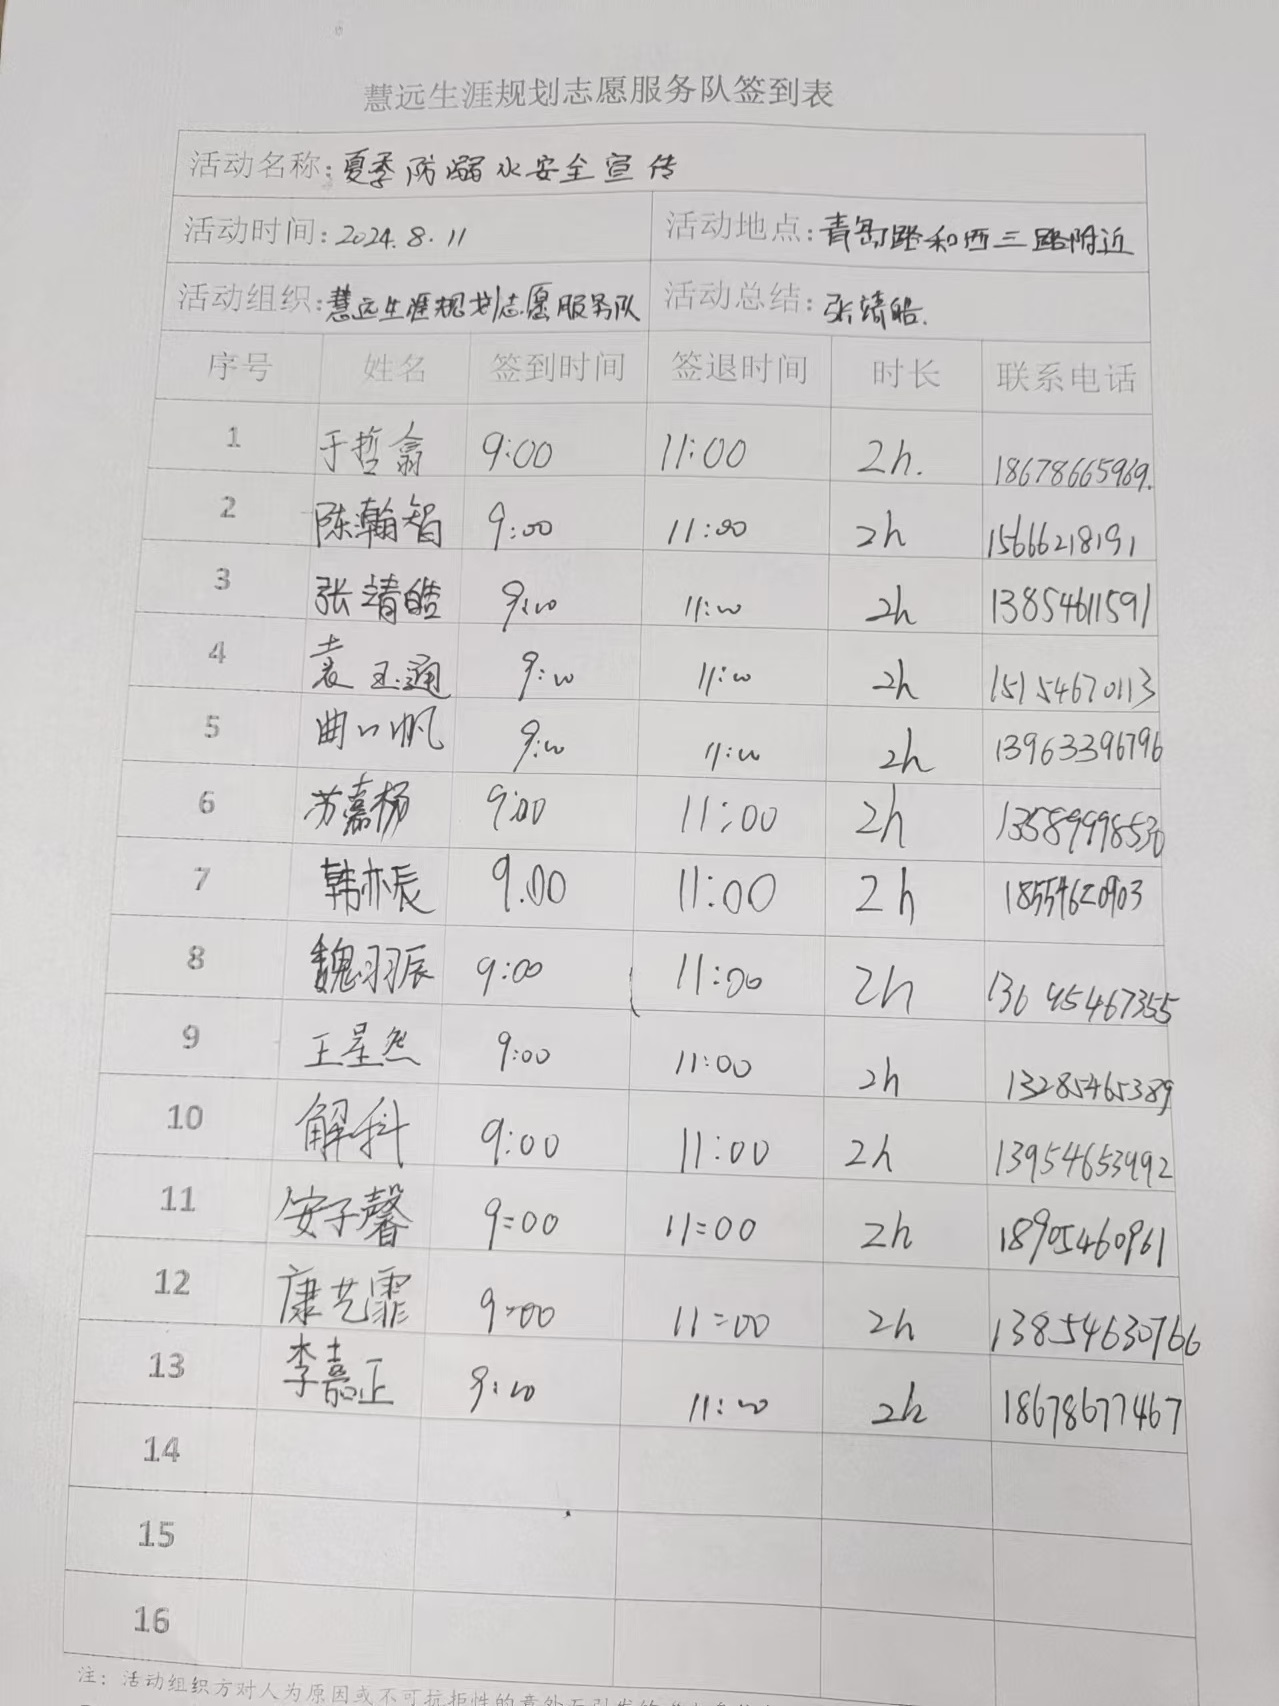 慧远生涯规划志愿服务队签到表
活动名称:夏季防溺水安全宣传
活动时间:2024.8.11 活动地点:青岛路和西三路附近
活动组织:慧远生涯规划志愿服务队 活动总结:张靖皓.
序号 姓名 签到时间 签退时间 时长 联系电话
1 于哲翕 9:00 11:00 2h. 18678665969.
2 陈瀚智 9:00 11:00 2h 15666218191
3 张靖皓 9:00 11:00 2h 13854611591
4 袁玉通 9:00 11:00 2h 15154670113
5 曲一帆 9:00 11:00 2h 13963396796
6 苏嘉杨 9:00 11:00 2h 13589998530
7 韩亦辰 9.00 11:00 2h 18554620903
8 魏羽辰 9:00 11:00 2h 13645467355
9 王星然 9:00 11:00 2h 13285465389
10 解抖 9:00 11:00 2h 13954653492
11 安子馨 9:00 11:00 2h 18905460961
12 康艺霏 9:00 11:00 2h 13854630766
13 李嘉正 9:00 11:00 2h 18678677467
14
15
16
注：活动组织方对人为原因或不可抗拒性的意外